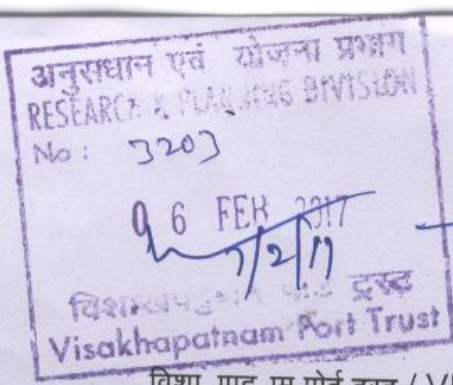 अनुसंधान एवं योजना प्रभाग
RESEARCH & PLANNING DIVISION
No : 3203
06 FEB 2017
7/2/17
विशाखपट्टणम पोर्ट ट्रस्ट
Visakhapatnam Port Trust